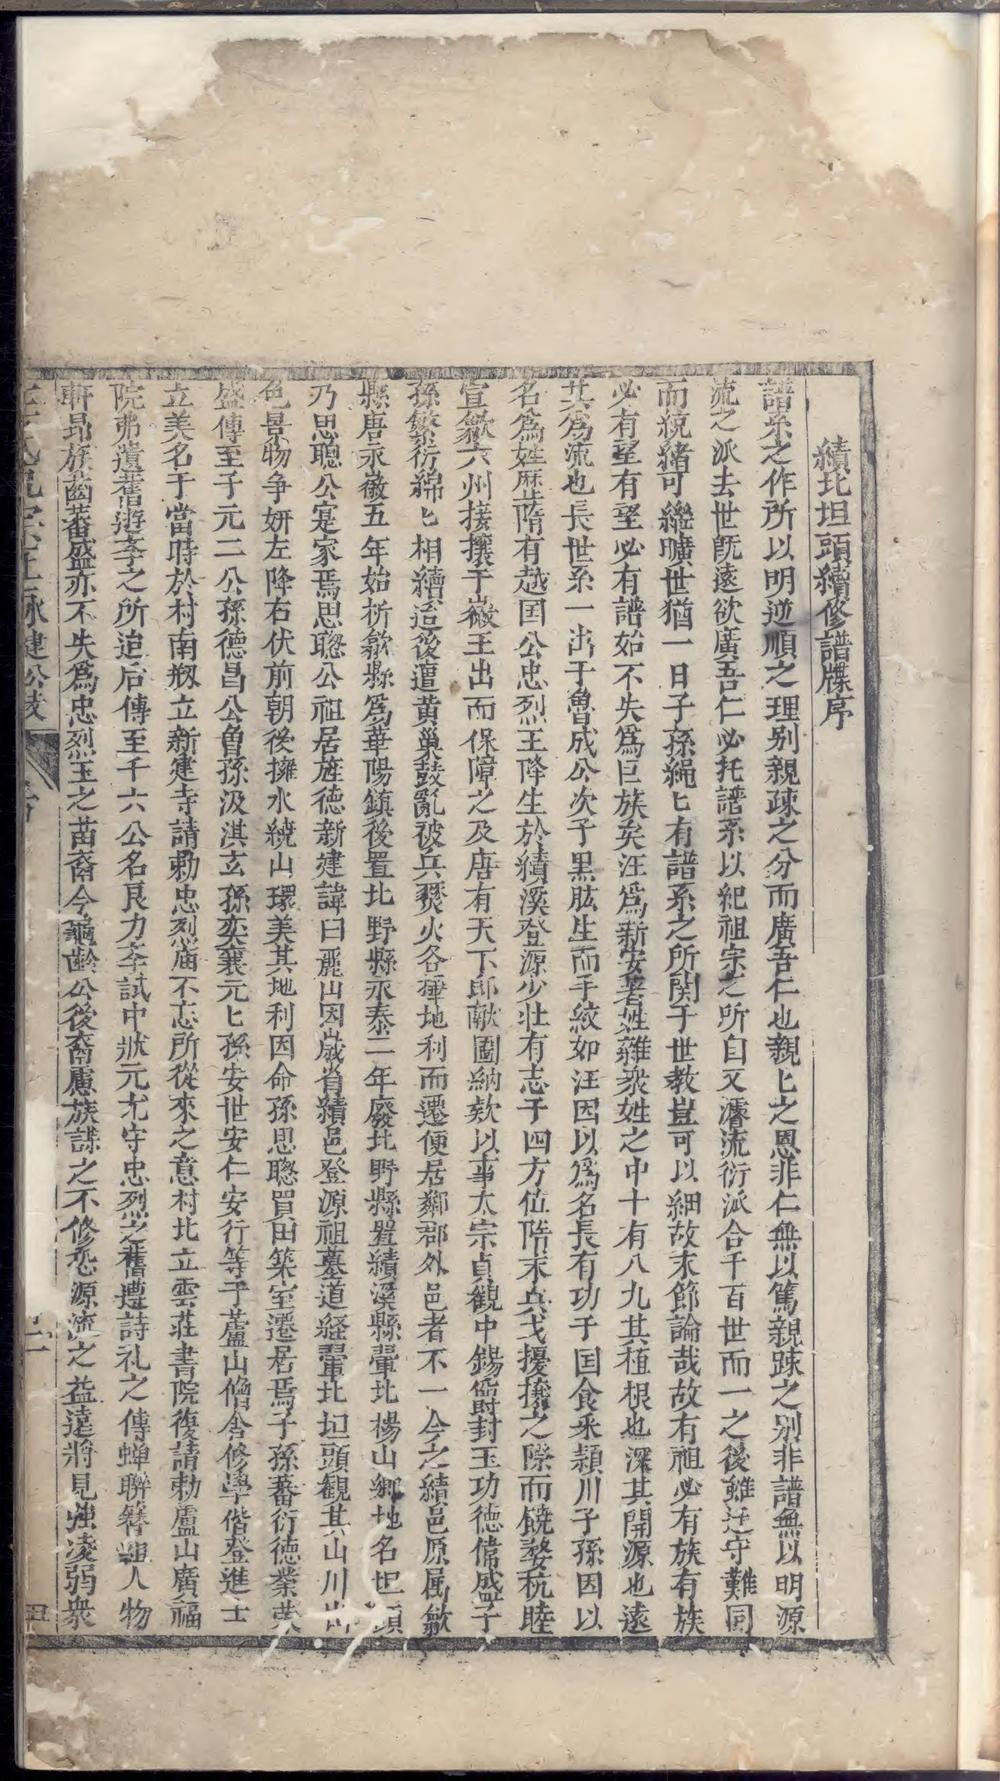 績北坦頭續修譜牒序
譜系之作所以明逆順之理别親疎之分而廣吾仁也親匕之恩非仁無以篤親踈之别非譜無以明源
流之派去世旣遠欲廣吾仁必托譜系以紀祖宗之所自又濬流衍派合千百世而一之後雖迁守難同
而統緒可繼曠世猶一日子孫繩匕有譜系之所関于世教豈可以細故末節論哉故有祖必有族有族
必有望有望必有譜始不失爲巨族矣汪爲新安著姓雖衆姓之中十有八九其植根也深其開源也遠
其爲流也長世系一出于魯成公次子黑肱生而手紋如汪因以爲名長有功于囯食釆頴川子孫因以
名爲姓歴隋有越国公忠烈王降生於績溪登源少壮有志于四方位隋末兵戈擾攘之際而饒婺杭睦
宣歙六州擾攘于巌王出而保障之及唐有天下即献圖納欵以事太宗貞観中錫爵封王功德俻盛子
孫繁衍綿匕相續迨後遭黄巢鼓亂被兵燹火各擇地利而遷便居鄰郡外邑者不一今之績邑原属歙
縣唐永徽五年始析歙縣爲華陽鎮後置北野縣永泰二年廢北野縣置績溪縣翬北楊山鄉地名坦頭
乃思聰公寔家焉思聦公祖居旌德新建諱曰麗山因歳省績邑登源祖墓道経翬北坦頭観其山川出
色景物争妍左降右伏前朝後擁水繞山環美其地利因命孫思聦買田築室遷居焉子孫蕃衍德業茂
盛傳至子元二公孫德昌公魯孫汲淇玄孫奕襄元匕孫安世安仁安行等于蘆山僧舎修學偕登進士
立美名于當時於村南剏立新建寺請勅忠烈庙不忘所從來之意村北立雲荘書院復請勅盧山廣福
院弗遺舊遊李之所追后傳至千六公名良力李試中狀元尤守忠烈之舊遵詩礼之傳蟬聯簪組人物
軒昂族齒蕃盛亦不失爲忠烈王之苗裔今龜齡公後裔慮族諜之不修恐源流之益遠將見強凌弱衆